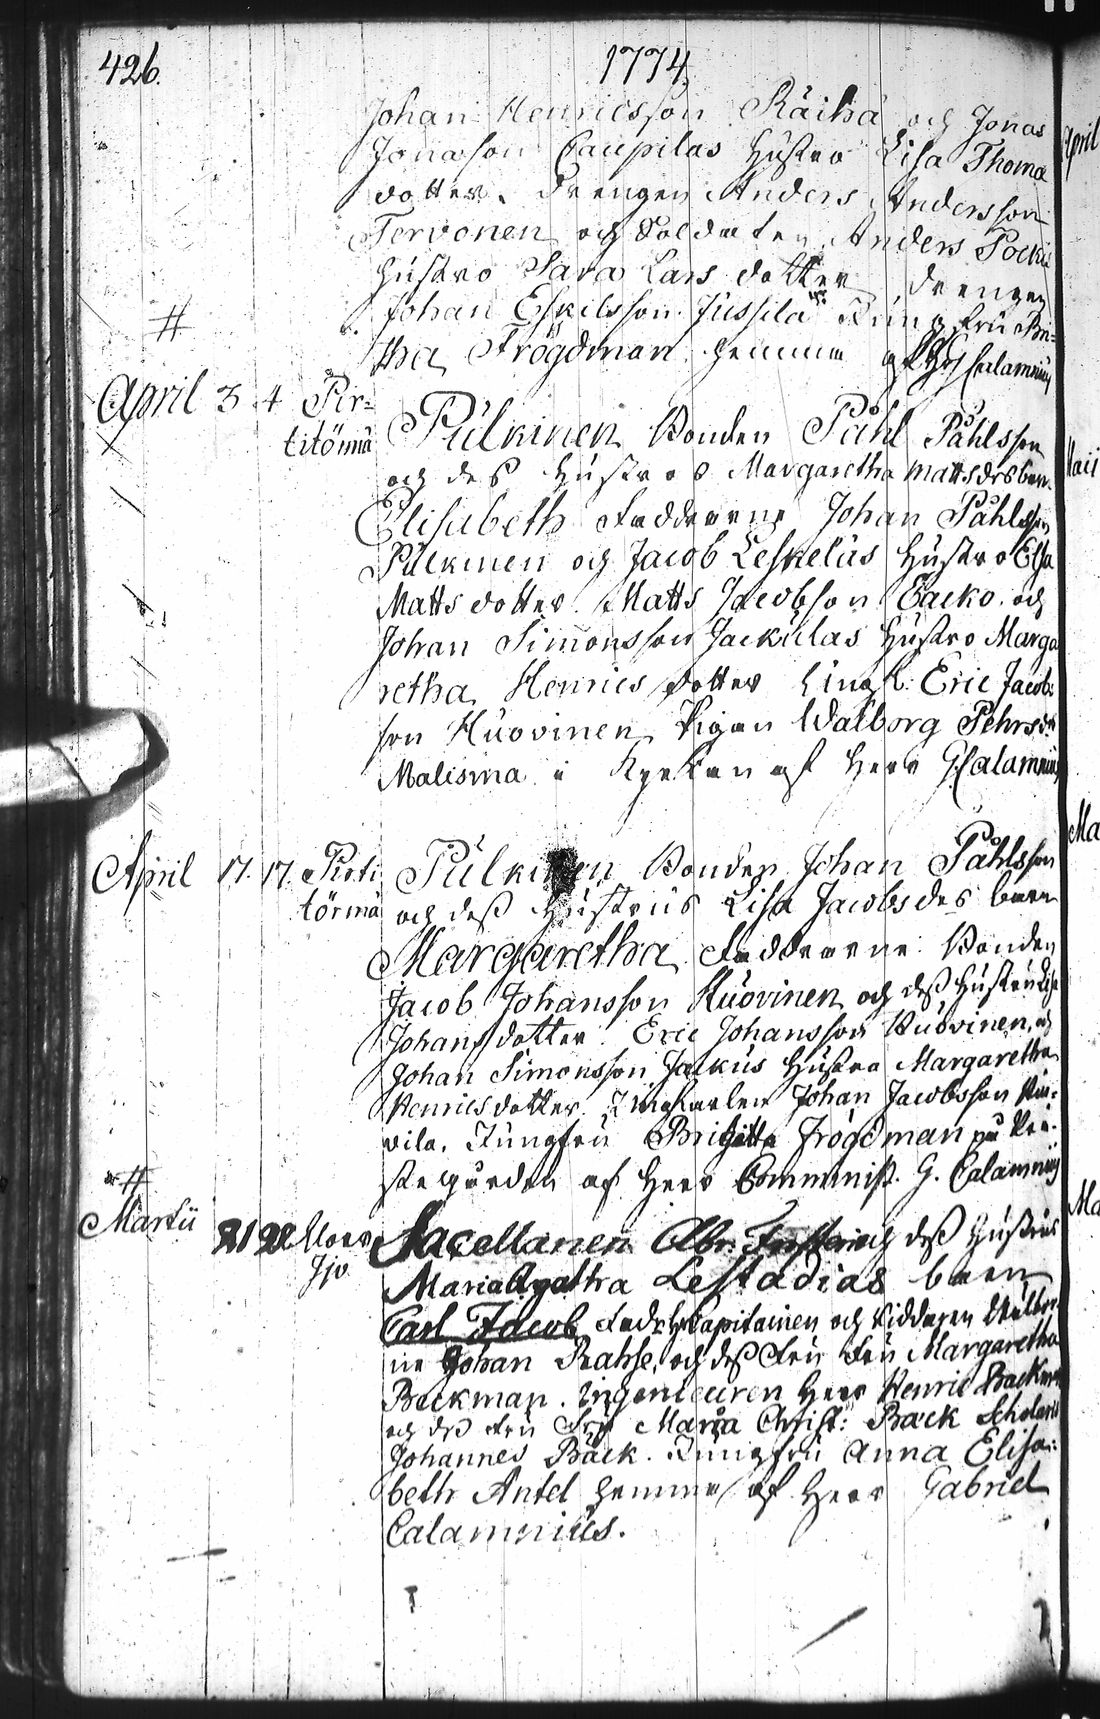 426. 1774
Johan Henricsson Räihä och Jonas
Jonasson Caupilas Hustro Lisa Thoma
dotter. Drengen Anders Andersson
Tervonen och Soldaten Anders Pockis
hustro Sara Lars dotter, drengen
Johan Eskilsson Jussila Jungfru Bri=
# tha Frögdman hemma af Hr Calamnius
April 3. 4 Pir= Pulkinen Bonden Påhl Påhlsson
titörmä och des Hustros Margaretha Mattsdrs barn
Elisabeth Faddrarne Johan Påhlsson
Pulkinen och Jacob Leskeläs Hustro Elsa
Matts dotter. Matts Jacobson Backo. och
Johan Simonsson Jackulas Hustro Marga
retha Henrics dotter Lingk. Eric Jacobs
son Huovinen Pigan Walborg Pehrs dr
Malisma i Kyrkan af Herr G. Calamnius
April 17. 17. Pirti Pulkinen Bonden Johan Påhlsson
törmä och dess Hustrus Lisa Jacobsdes barn
Margaretha Faddrarne Bonden
Jacob Johansson Huovinen och dess Hustru Lisa
Johansdotter. Eric Johansson Huovinen, och
Johan Simonsson Jackus Hustro Margaretha
Henricsdotter. Johan Jacobsson
vila. Jungfru Brigitta Frögdman på Prä=
stegården af Herr Comminist. G. Calamnius
#
Martii 21 22 Ijo Sacellanen och dess Hustrus
Maria Agatha Lestadias barn
Carl Jacob Fadr. Hr Capitainen och Riddaren
Johan Rahse, och dess Fru Fru Margaretha
Backman. Ingenieuren Herr Henric Backman
och dess Fru Fru Maria Christ: Back Scholaris
Johannes Bäck. Jungfru Anna Elisa=
beth Antel hemma af Herr Gabriel
Calamnius.